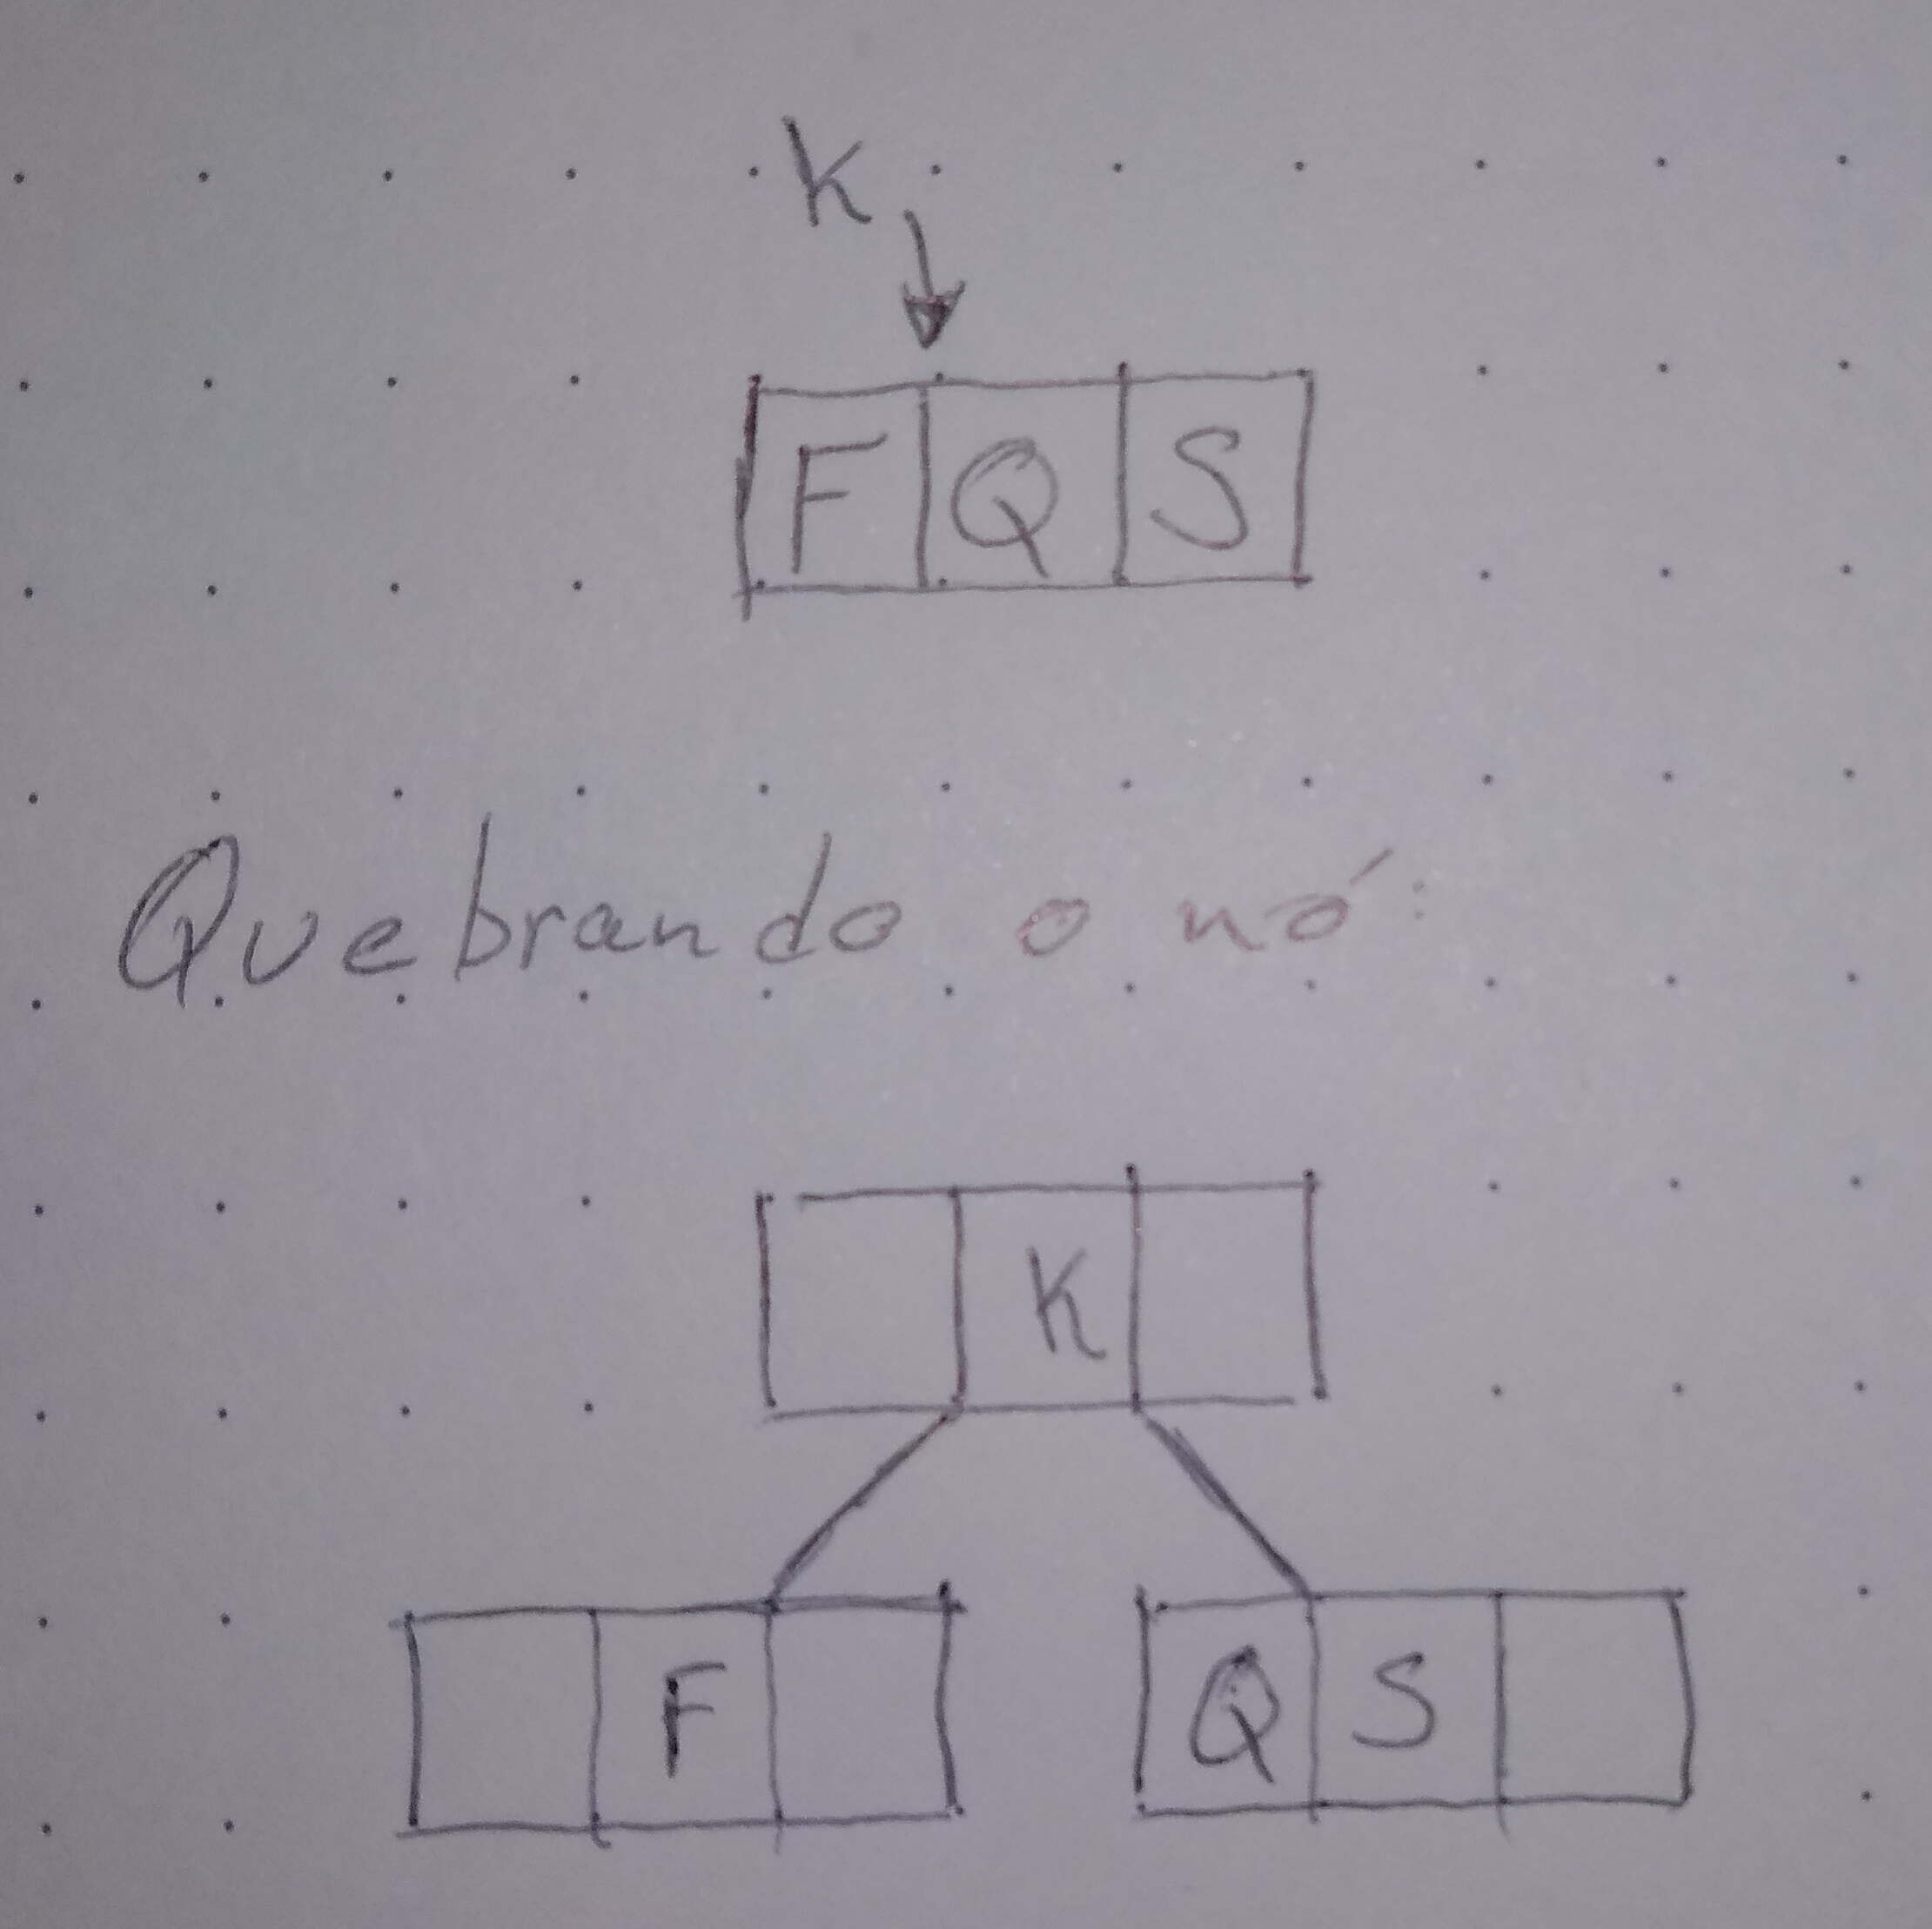 K
F Q S
Quebrando o nó:
K
F Q S